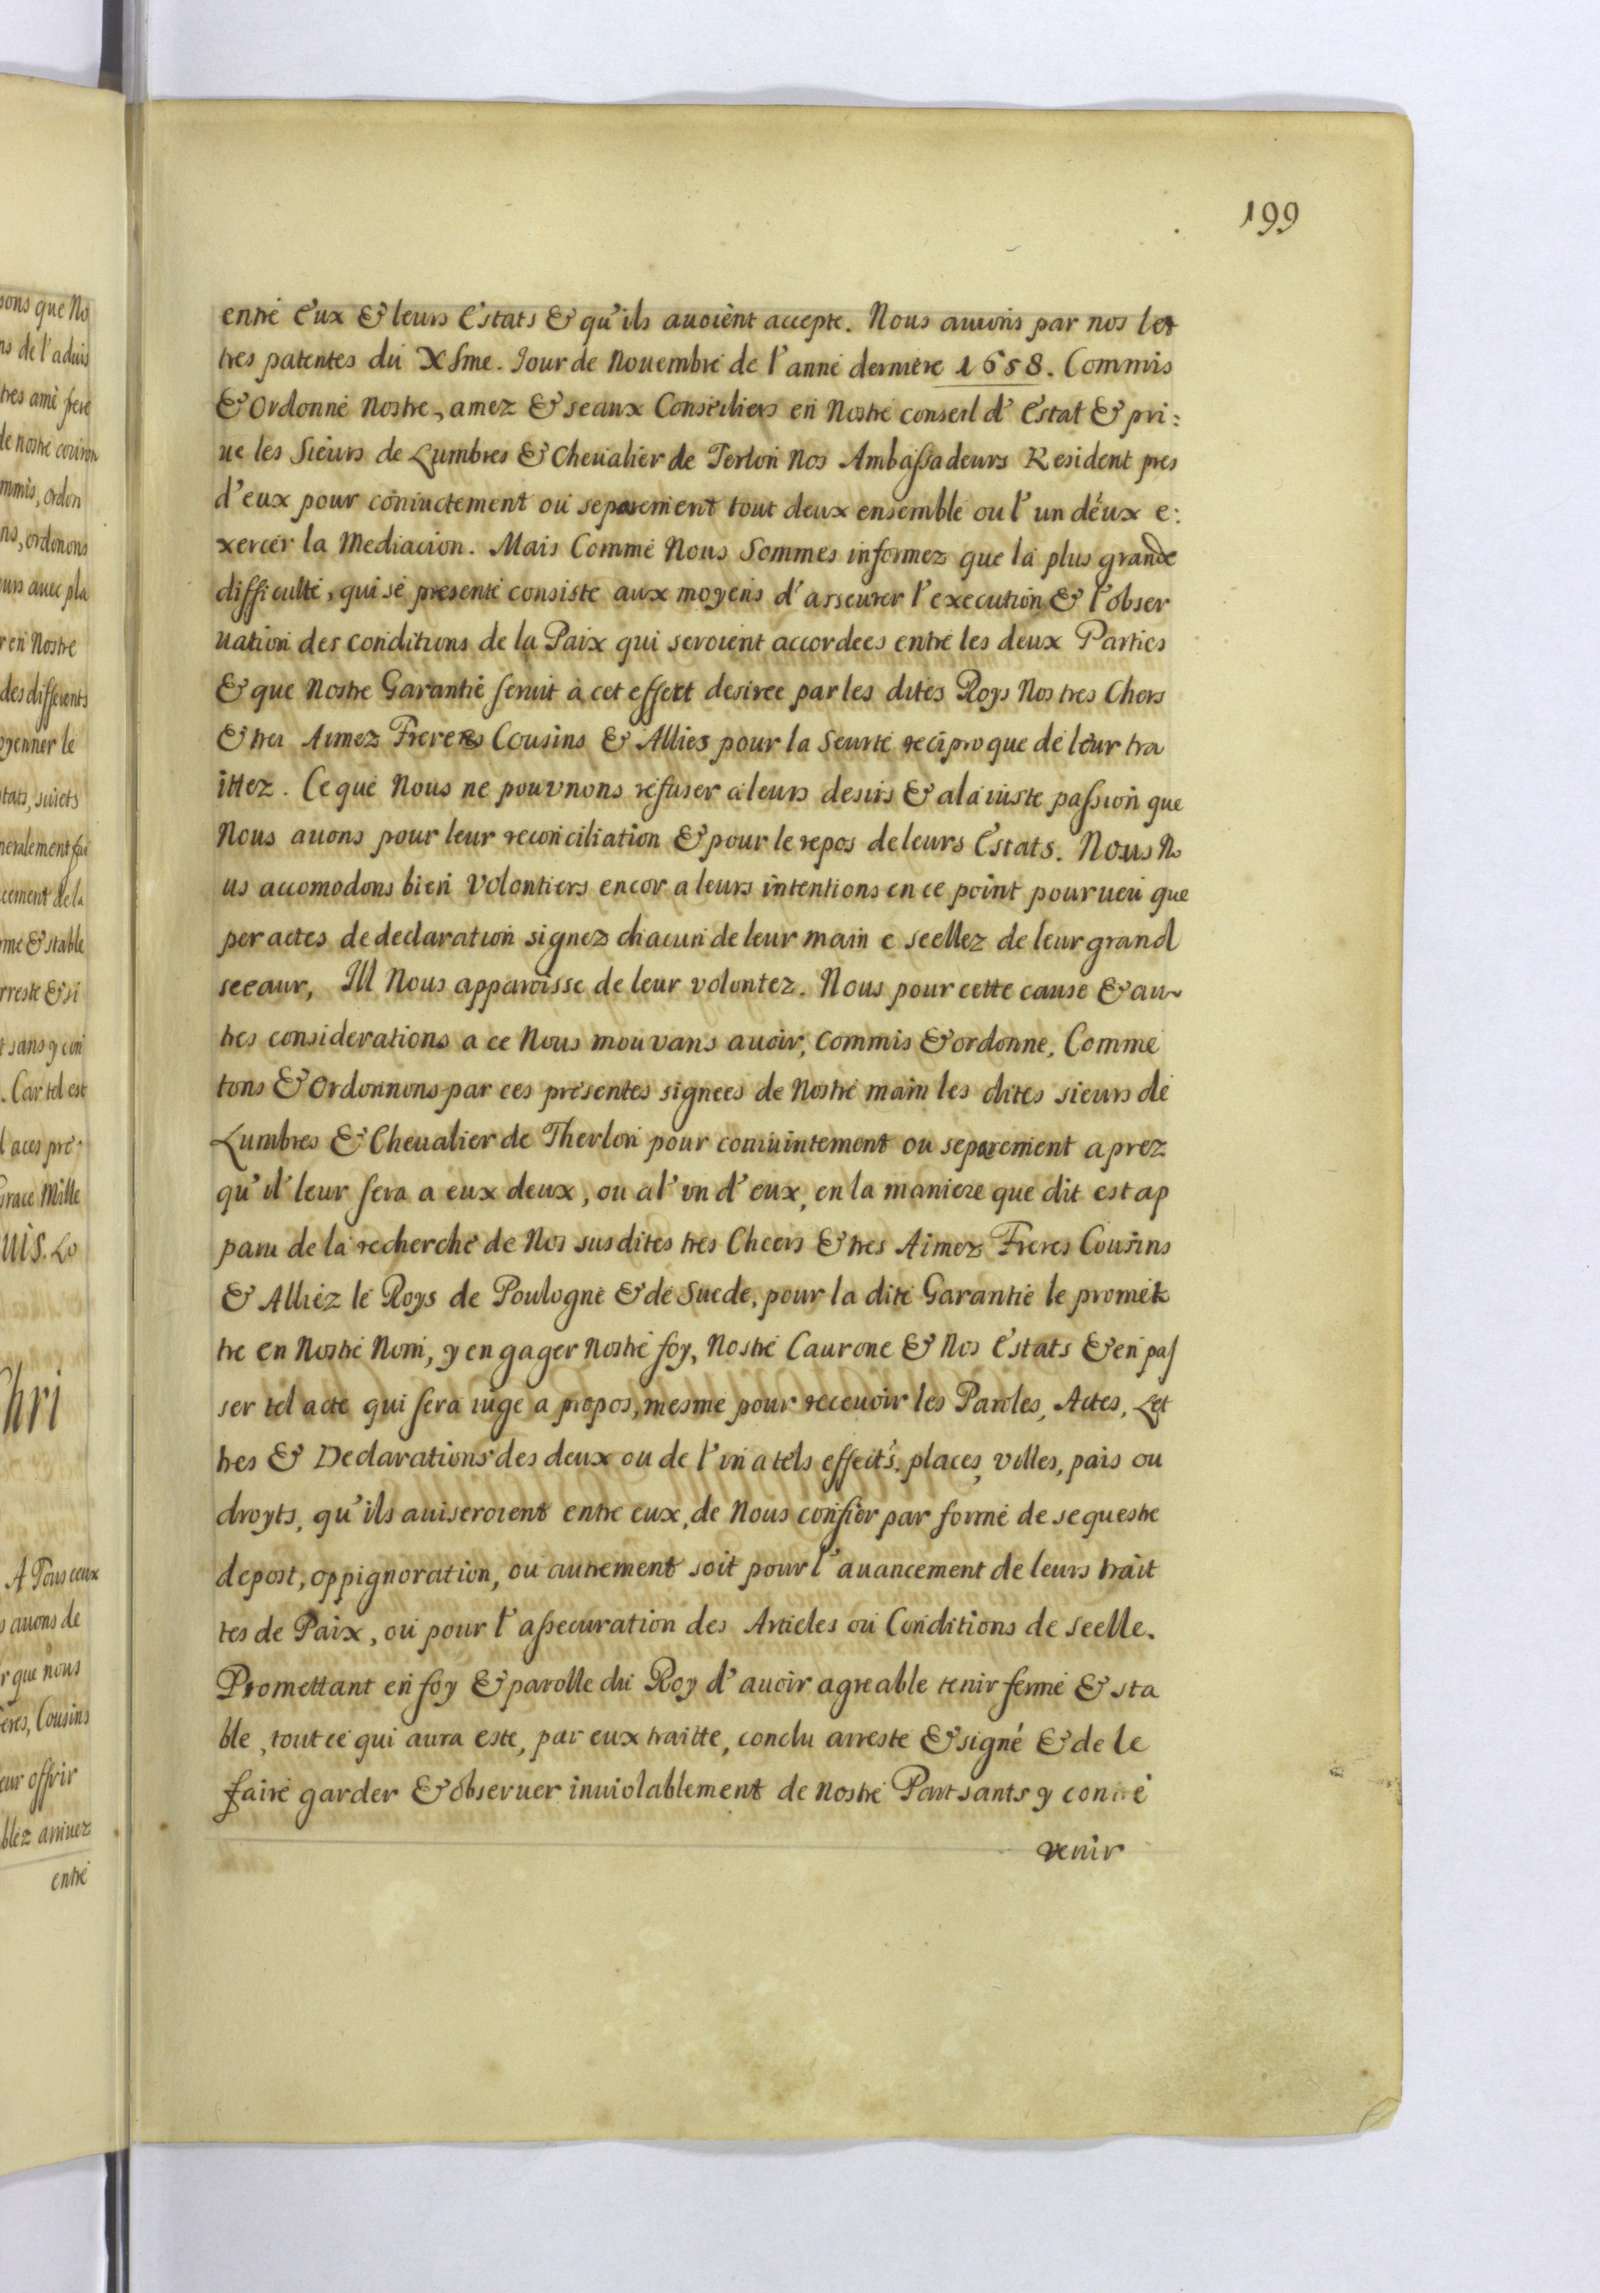 199
entré Eux & leurs Estats & qu'ils auoiènt accepte. Nous auuoñs par nos let
tres patentes du Xsme. Jour de Nouembré de l'anné dernière 1658. Commis
& Ordonné Nostre, amez & seaux Conseiliers en Nostré conseil d'Estat & pri:
ue les Sieurs de Lumbres & Cheualier de Terlon Nos Ambassadeurs Resident pres
d'eux pour coniuctement ou separement tout deux ensemble ou l'un d'eux e:
xercér la Mediacion. Mais Commé Nous Sommes informez que la plus grande
difficulté, qui sé presenté consiste aux moyens d'arseurer l'execution & l'obser
uation des conditions de la Paix qui seroient accordees entré les deux Parties
& que Nostre Garantié seruit à cet effett desiree par les dites Roys Nos tres Chers
& tres Aimez Freres Cousins & Alliez pour la Seurté reciproque dé leur tra
ittez. Ce qué Nous ne pouvnons réfuser a leurs desirs & a la iuste passion que
Nous auons pour leur reconciliation & pour le repos de leurs Estats. Nous No
us accomodons bien Volontiers encor a leurs intentions en ce point pourueu que
per actes de declaration signez chacun de leur main e seellez de leur grand
seeaur, Ill Nous apparoisse de leur volontez. Nous pour cette cause & au
tres considerations a ce Nous mouvans auoir, commis & ordonne, Commé
tons & Ordonnons par ces présentes signees de Nostré main les dites sieurs dé
Lumbres & Cheualier de Therlon pour coniuintement ou separement aprez
qu'il leur sera a eux deux, ou a l'vn d'eux, en la maniere que dit est ap
paru de la recherché de Nos susdites tres Cheers & tres Aimez Freres Cousins
& Alliéz lé Roys de Poulogné & dé Suede, pour la dité Garantié le promét
tre en Nostré Nom, y engager Nostré foy, Nostré Caurone & Nos Estats & en pas
ser tel acte qui sera iugé a propos, mesme pour receuoir les Paroles, Actes, Let
tres & Declarations des deux ou de l'vn a tels effeits. places, villes, pais ou
droyts, qu'ils auiseroient entre eux, de Nous confiér par formé de sequestre
depost, oppignoration, ou autrement soit pour l'auancement de leurs trait
tes de Paix, ou pour l'assecuration des Articles ou Conditions de seelle.
Promettant en foy & parolle du Roy d'auoir agreable tenir fermé & sta
ble, tout cé qui aura esté, par eux traitte, conclu arresté & signé & de le
fairé garder & observer inuiolablement de Nostré Part sants y
venir